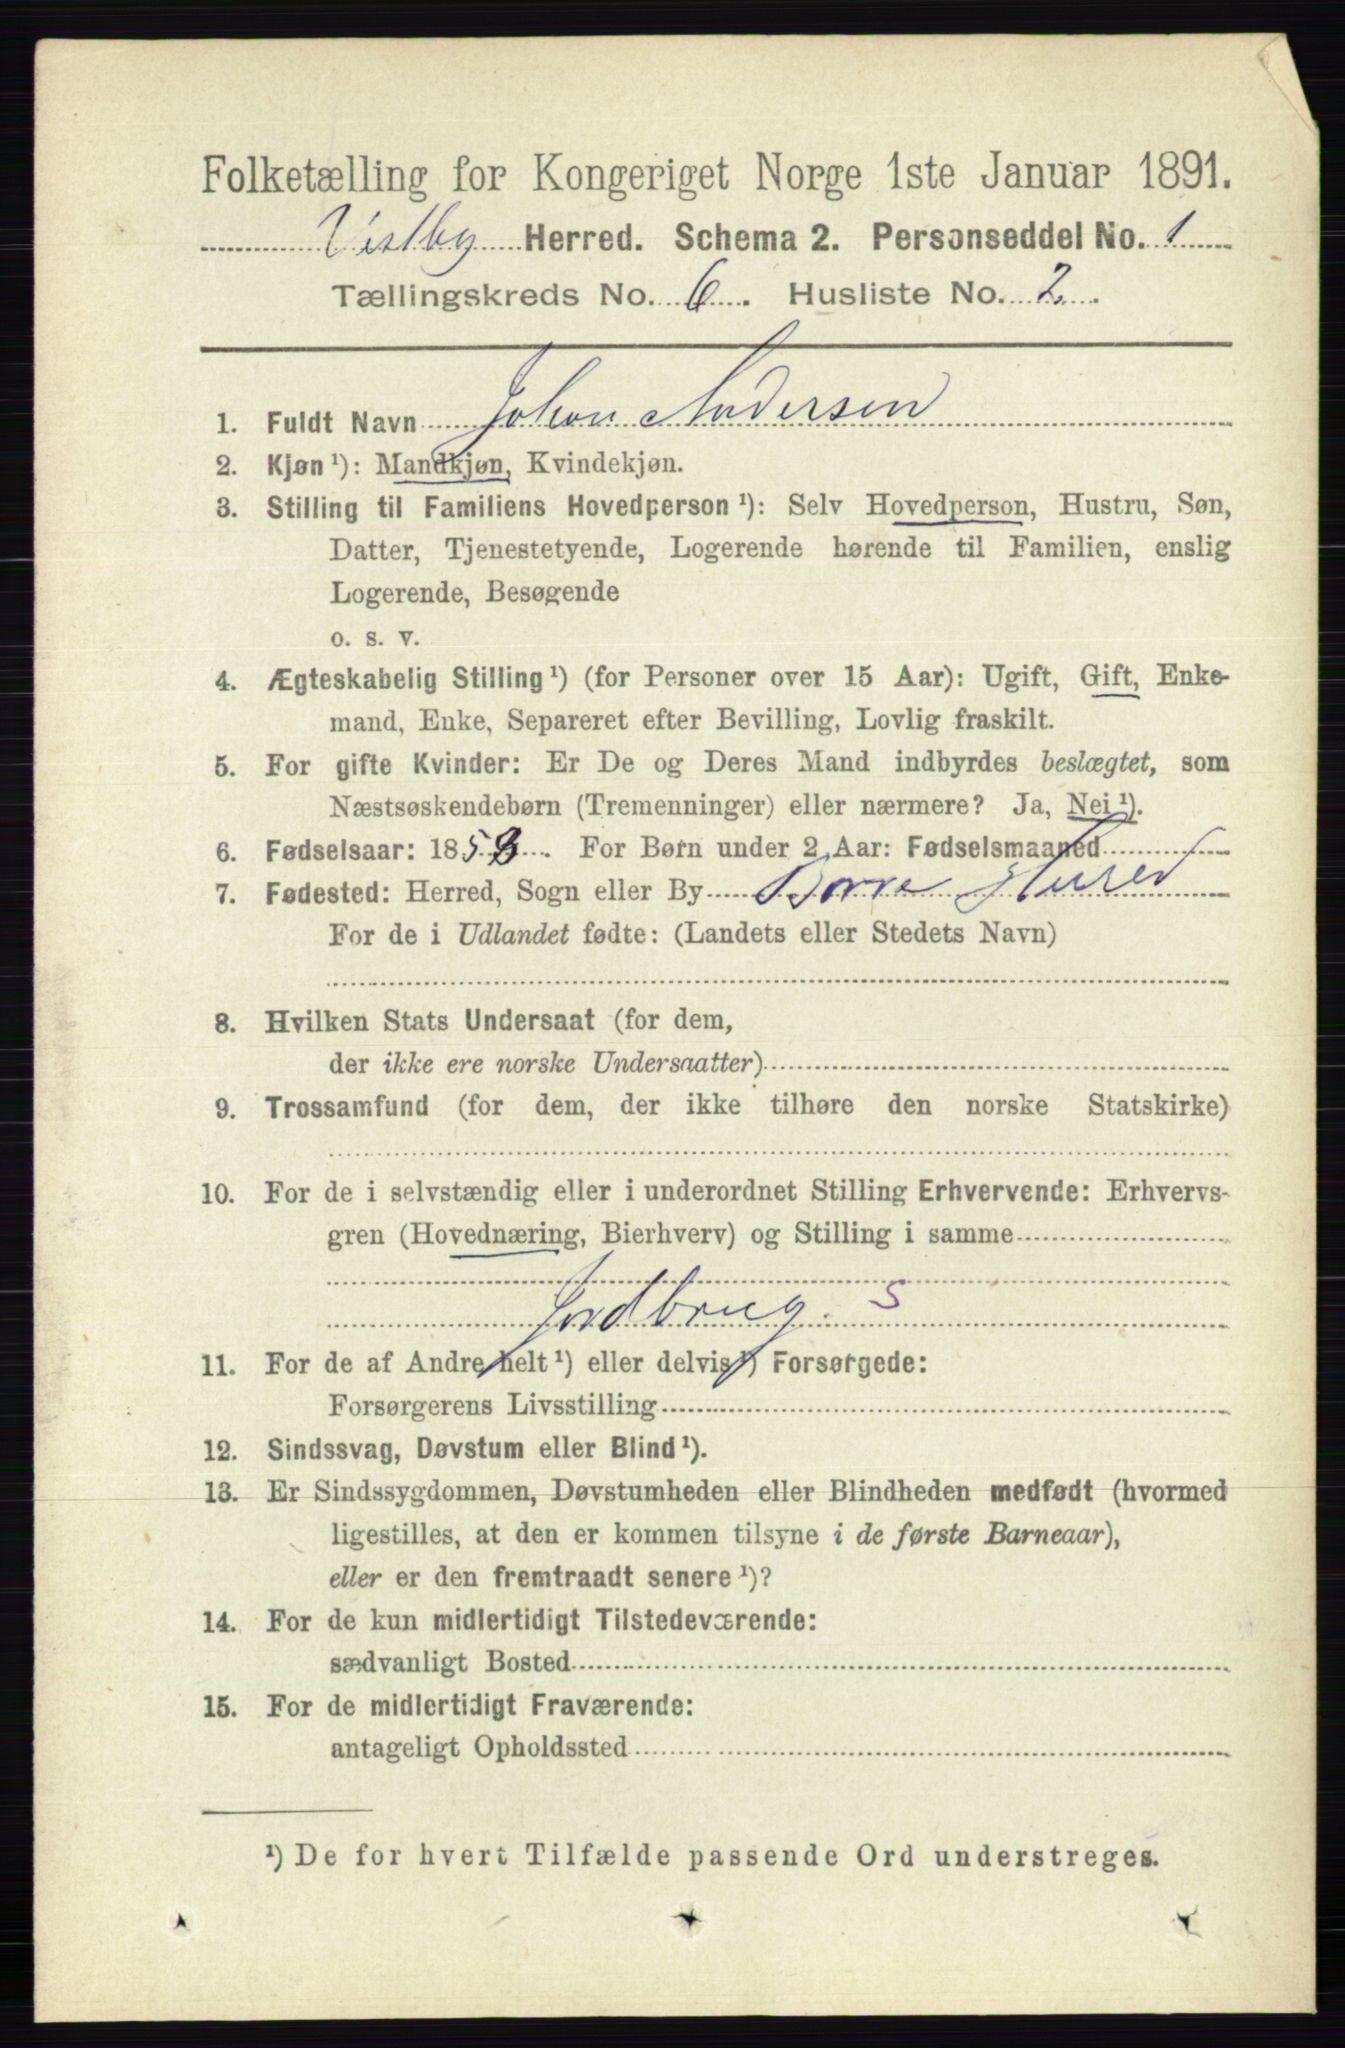 Folketælling for Kongeriget Norge 1ste Januar 1891.
Vestby Herred. Schema 2. Personseddel No. 1
Tællingskreds No. 6. Husliste No. 2.
1. Fuldt Navn Johan Andersen
2. Kjøn ¹): Mandkjøn, Kvindekjøn.
3. Stilling til Familiens Hovedperson ¹): Selv Hovedperson, Hustru, Søn,
Datter, Tjenestetyende, Logerende hørende til Familien, enslig
Logerende, Besøgende
o. s. v.
4. Ægteskabelig Stilling ¹) (for Personer over 15 Aar): Ugift, Gift, Enke-
mand, Enke, Separeret efter Bevilling, Lovlig fraskilt.
5. For gifte Kvinder: Er De og Deres Mand indbyrdes beslægtet, som
Næstsøskendebørn (Tremenninger) eller nærmere? Ja, Nei ¹).
6. Fødselsaar: 185. For Børn under 2 Aar: Fødselsmaaned
7. Fødested: Herred, Sogn eller By Borre
For de i Udlandet fødte: (Landets eller Stedets Navn)
8. Hvilken Stats Undersaat (for dem,
der ikke ere norske Undersaatter)
9. Trossamfund (for dem, der ikke tilhøre den norske Statskirke)
10. For de i selvstændig eller i underordnet Stilling Erhvervende: Erhvervs-
gren (Hovednæring, Bierhverv) og Stilling i samme
Jordbrug. s
11. For de af Andre helt ¹) eller delvis ¹) Forsørgede:
Forsørgerens Livsstilling
12. Sindssvag, Døvstum eller Blind ¹).
13. Er Sindssygdommen, Døvstumheden eller Blindheden medfødt (hvormed
ligestilles, at den er kommen tilsyne i de første Barneaar),
eller er den fremtraadt senere ¹)?
14. For de kun midlertidigt Tilstedeværende:
sædvanligt Bosted
15. For de midlertidigt Fraværende:
antageligt Opholdssted
¹) De for hvert Tilfælde passende Ord understreges.